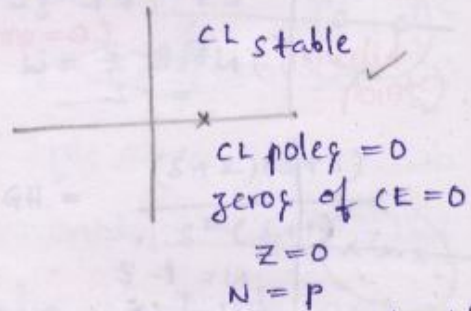 CL stable ✓
CL poles = 0
zeros of CE = 0
Z = 0
N = P